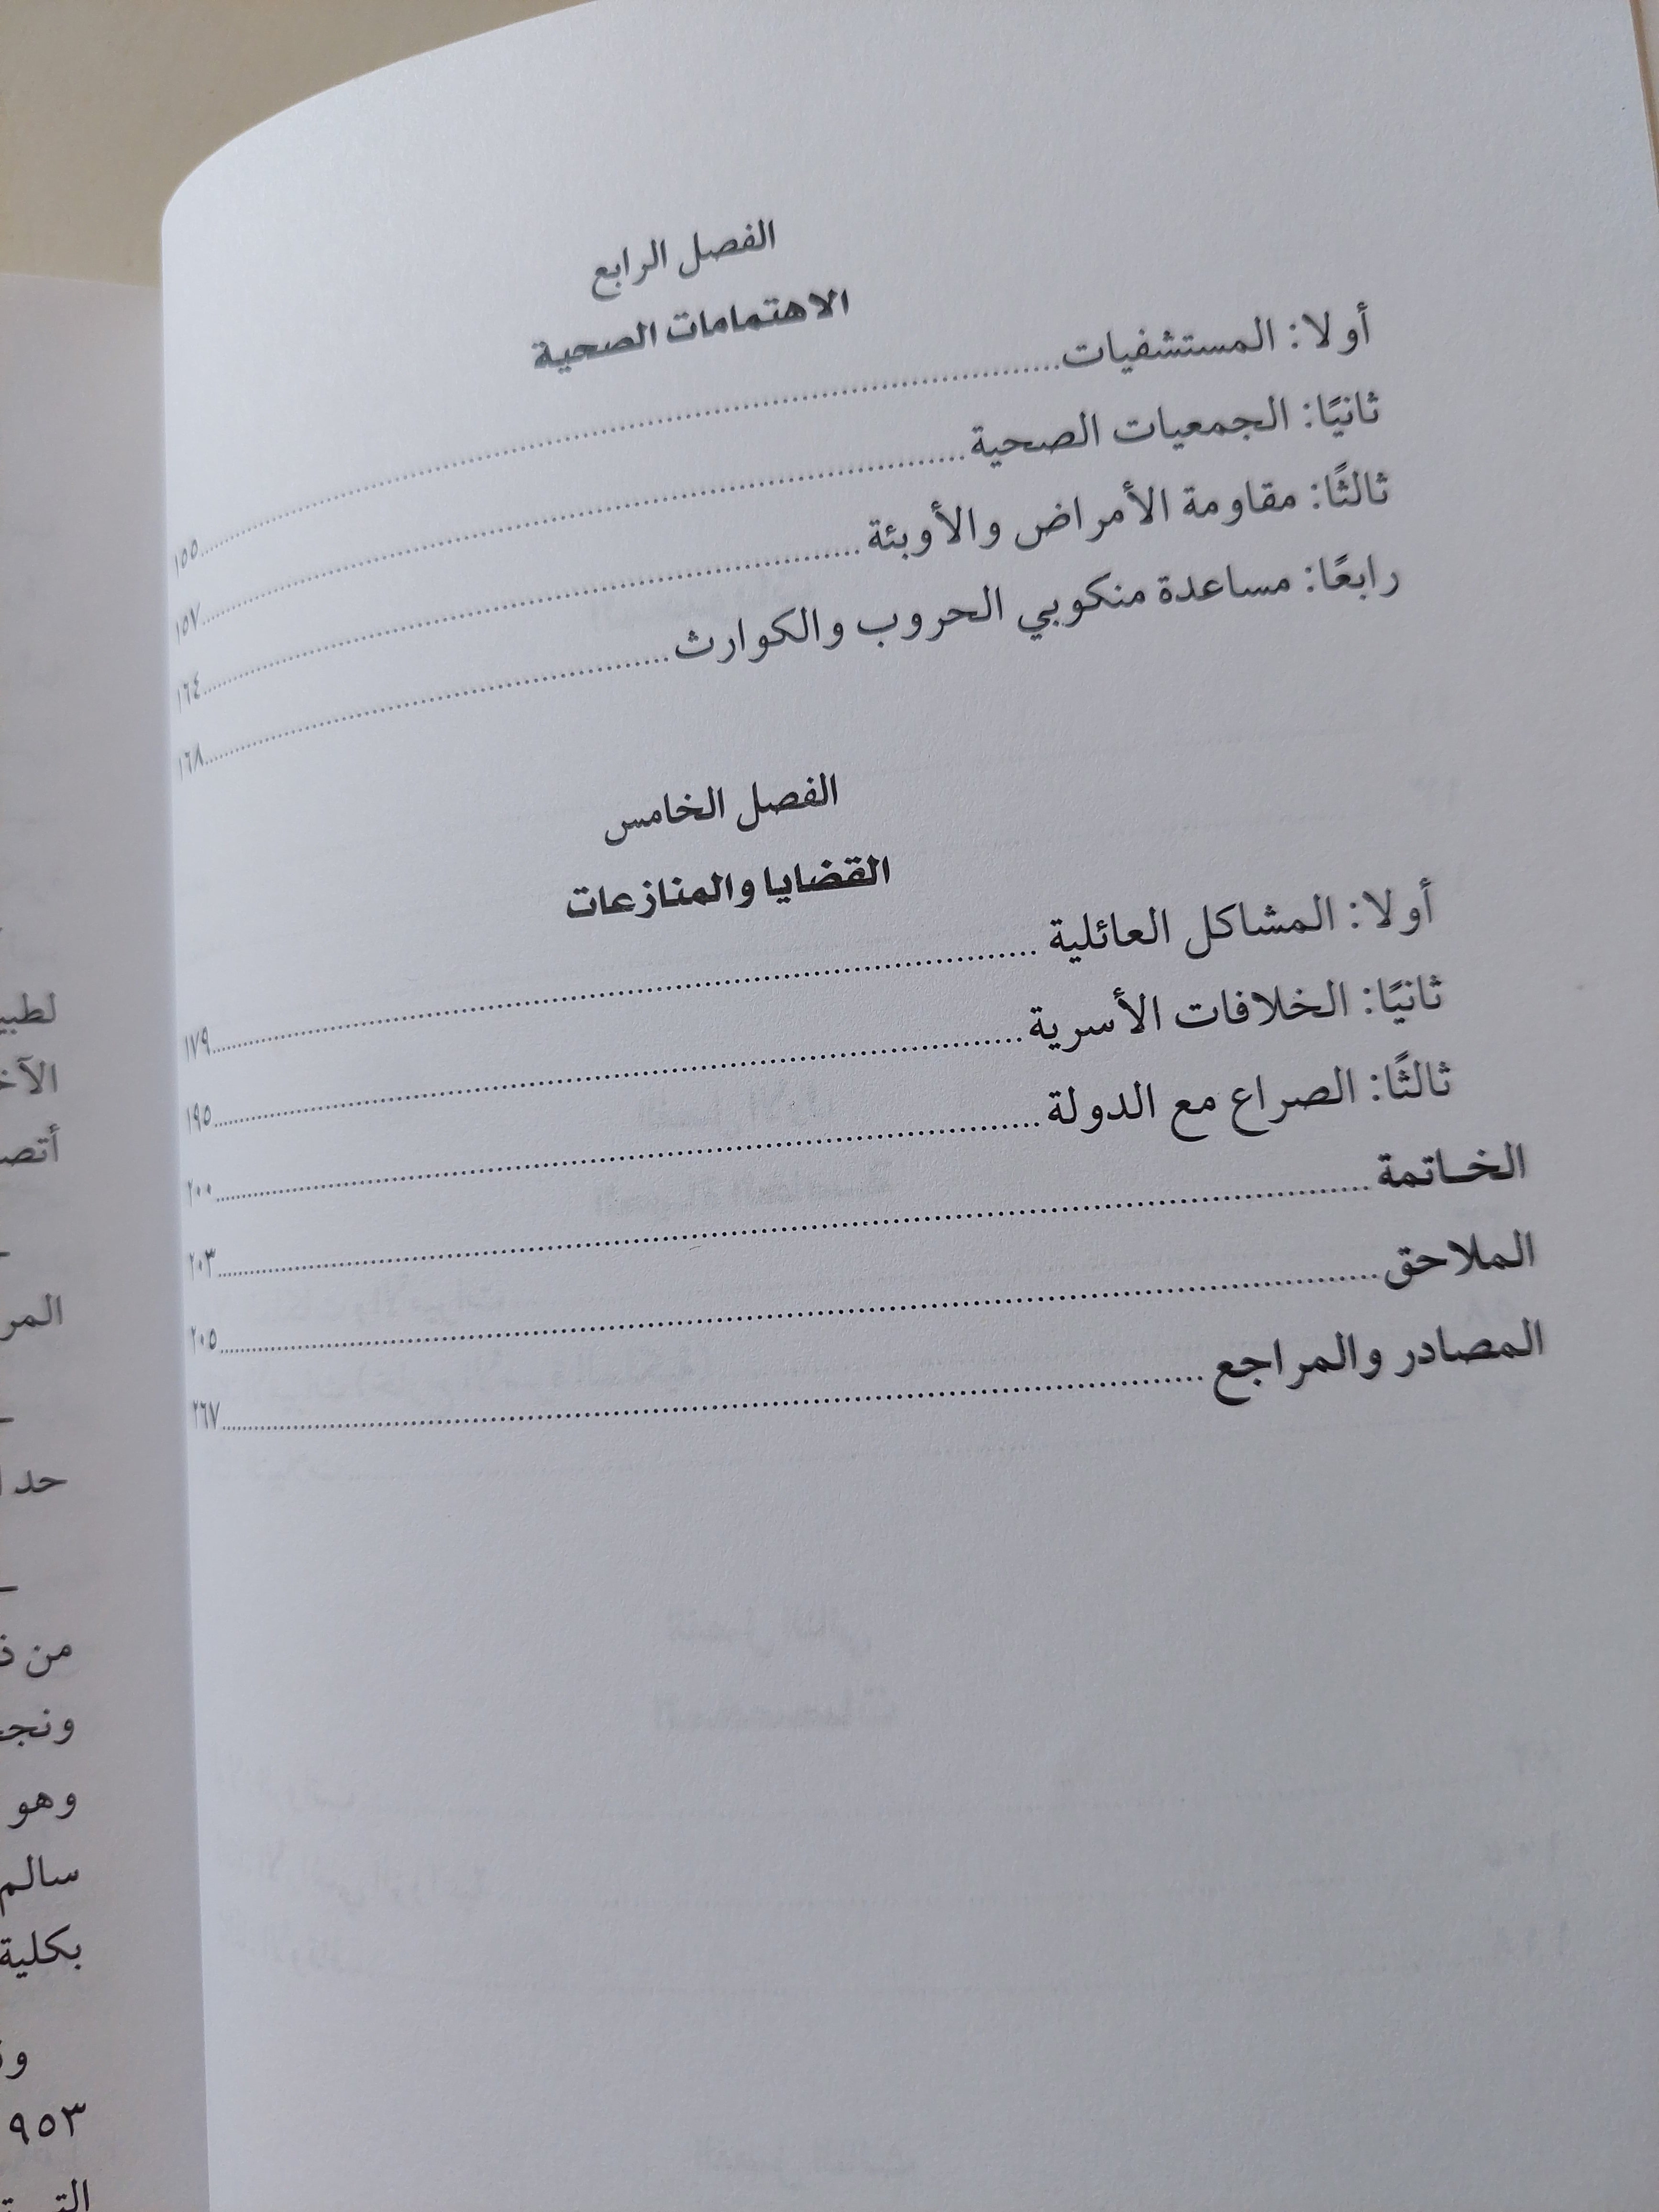 الفصل الرابع
الاهتمامات الصحية
أولا: المستشفيات........................١٥٥
ثانيًا: الجمعيات الصحية........................١٥٧
ثالثًا: مقاومة الأمراض والأوبئة........................١٦٤
رابعًا: مساعدة منكوبي الحروب والكوارث........................١٦٨
الفصل الخامس
القضايا والمنازعات
أولا: المشاكل العائلية........................١٧٩
ثانيًا: الخلافات الأسرية........................١٩٥
ثالثًا: الصراع مع الدولة........................٢٠٠
الخـاتمة........................٢٠٣
الملاحق........................٢٠٥
المصادر والمراجع........................٢٦٧
المر
من ذ
وهو
سالم
بكلية